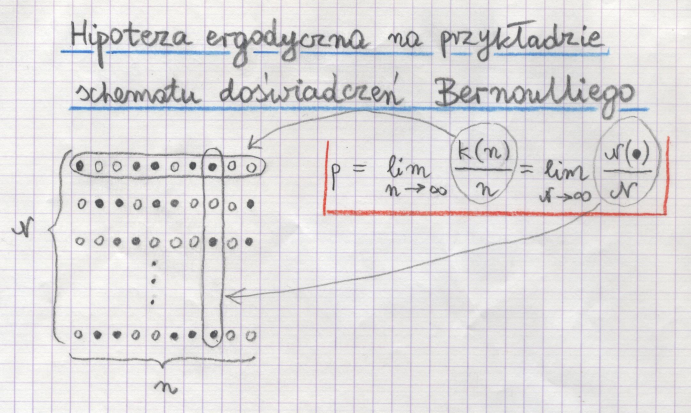 Hipoteza ergodyczna na przykładzie
schematu doświadczeń Bernoulliego
p = lim n→∞ k(n)/n = lim N→∞ N(•)/N
N
n